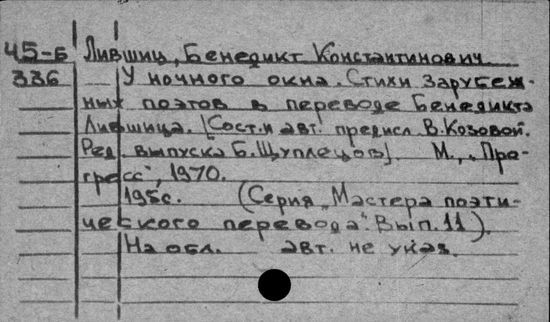 45-Б Лившиц, Бенедикт Константинович
336 У ночного окна. Стихи зарубеж-
ных поэтов в переводе Бенедикта
Лившица. [Сост. и авт. предисл. В. Козовой.
Ред. выпуска Б. Щуплецов]. М., „Про-
гресс", 1970.
195с. (Серия „Мастера поэти-
ческого перевода". Вып. 11).
На обл. авт. не указ.